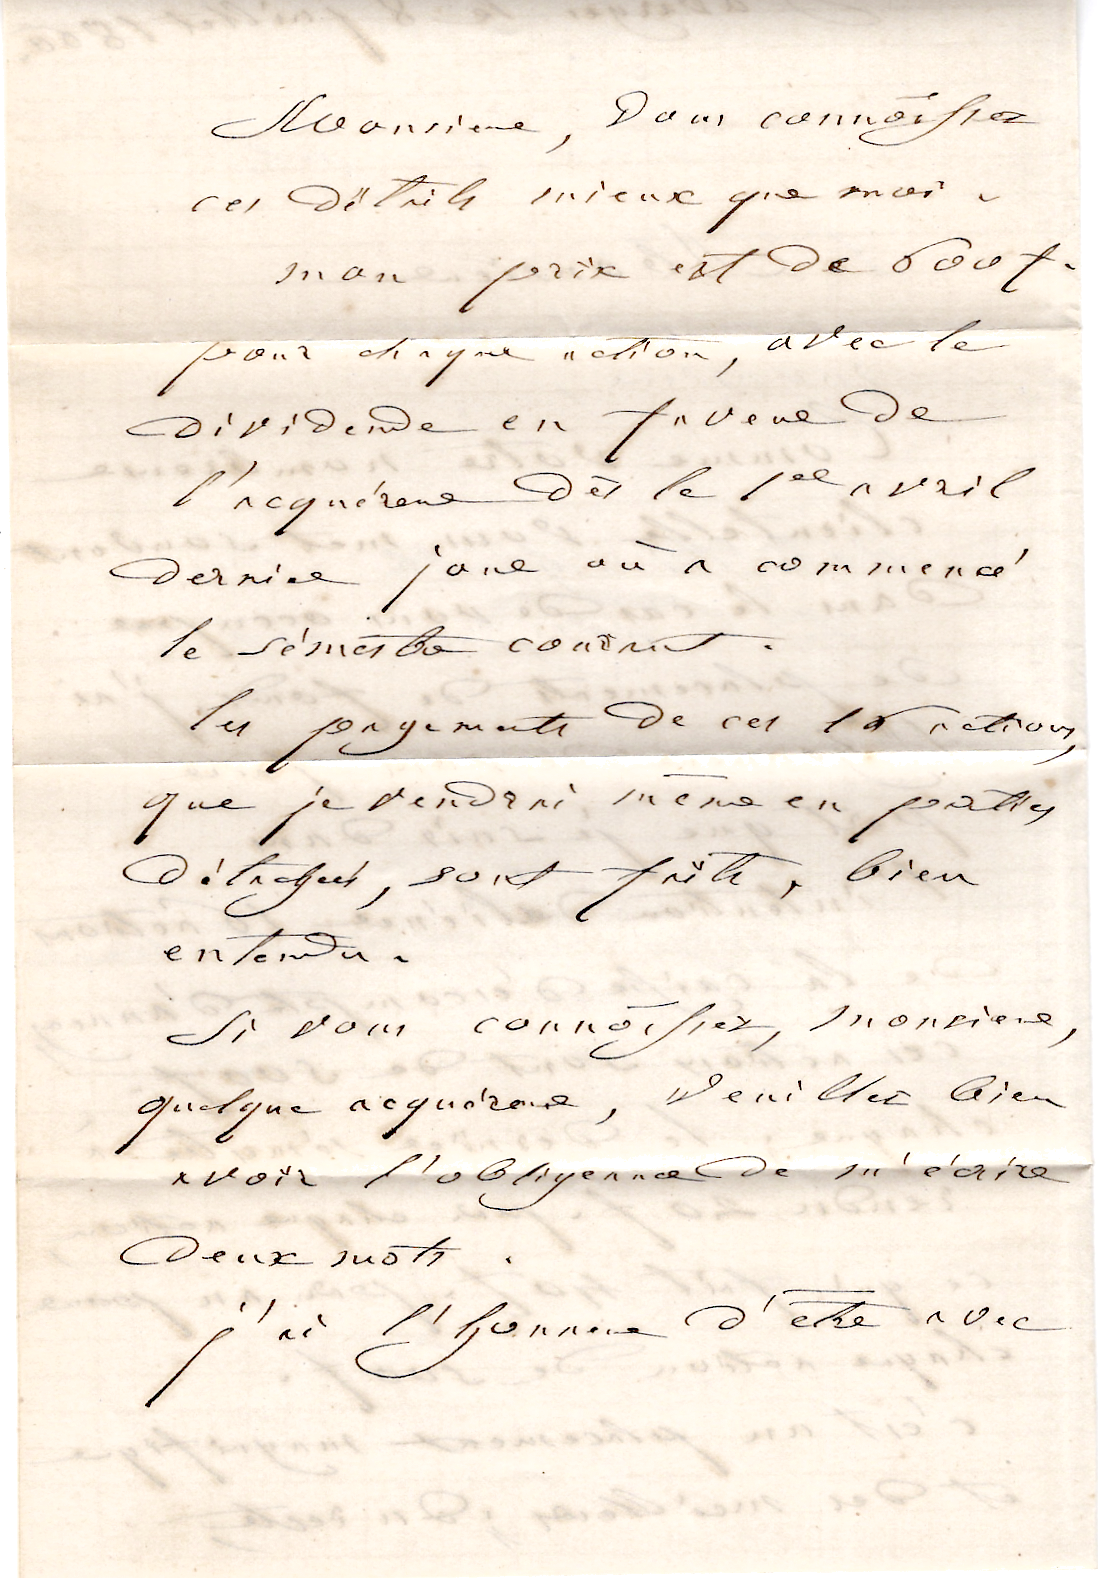 Monsieur, Vous connoissez
ces détails mieux que moi.
mon prix est de 600 f.
pour chaque action, avec le
dividende en faveur de
l'acquéreur dès le 1er avril
dernier jour où a commencé
le sémestre courant.
les payements de ces 16 actions,
que je vendrai même en parties
détachées, sont faits, bien
entendu.
Si vous connoissiez, monsieur,
quelque acquéreur, veuillez bien
avoir l'obligeance de m'écrire
deux mots.
j'ai l'honneur d'être avec